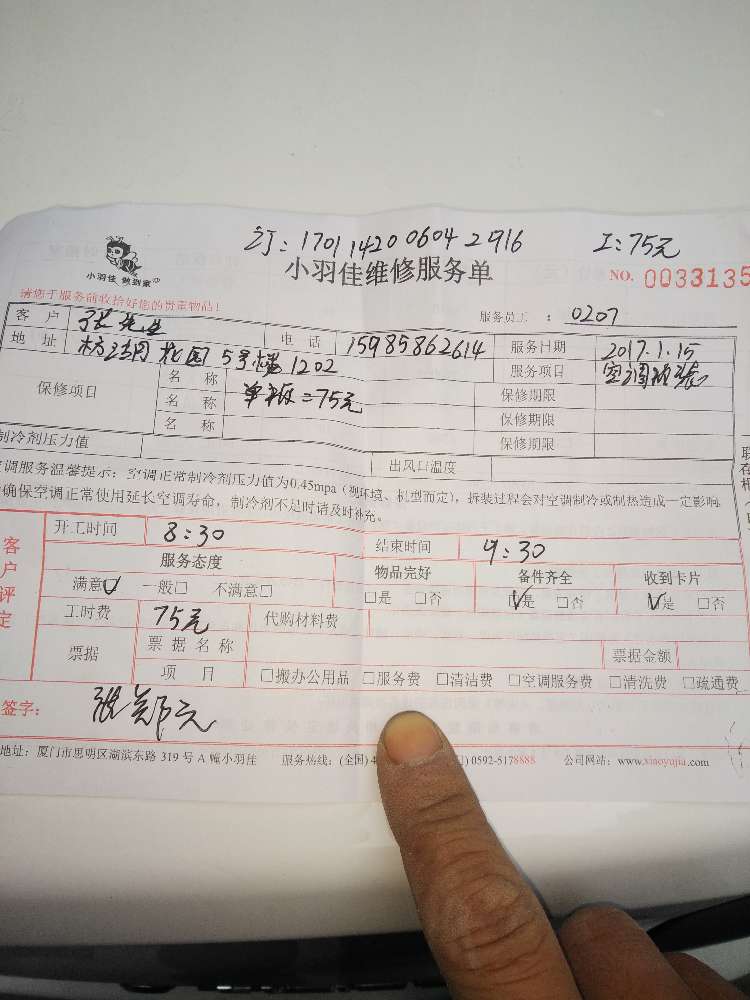 订: 17011420006042916 I: 75元
小羽佳 做到家
小羽佳维修服务单 NO. 0033135
请您于服务前收拾好您的贵重物品!
服务员工 : 0207
客户 张先生 电话 15985862614 服务日期 2017.1.15
地址 花园5号楼1202 服务项目 空调
保修项目 名称 保修期限
名称 =75元 保修期限
名称 保修期限
制冷剂压力值 出风口温度
调服务温馨提示:空调正常制冷剂压力值为0.45mpa(视环境、机型而定),拆装过程会对空调制冷或制热造成一定影响
确保空调正常使用延长空调寿命,制冷剂不足时请及时补充。
客户评定
开工时间 8:30 结束时间 9:30
服务态度 物品完好 备件齐全 收到卡片
满意☑ 一般□ 不满意□ □是 □否 ☑是 □否 ☑是 □否
工时费 75元 代购材料费
票据 票据名称 票据金额
项目 □搬办公用品 □服务费 □清洁费 □空调服务费 □清洗费 □疏通费
签字: 张
地址:厦门市思明区湖滨东路 319 号 A 幢小羽佳 服务热线:(全国)4 0592-5178888 公司网站:www.xiaoyujia.com